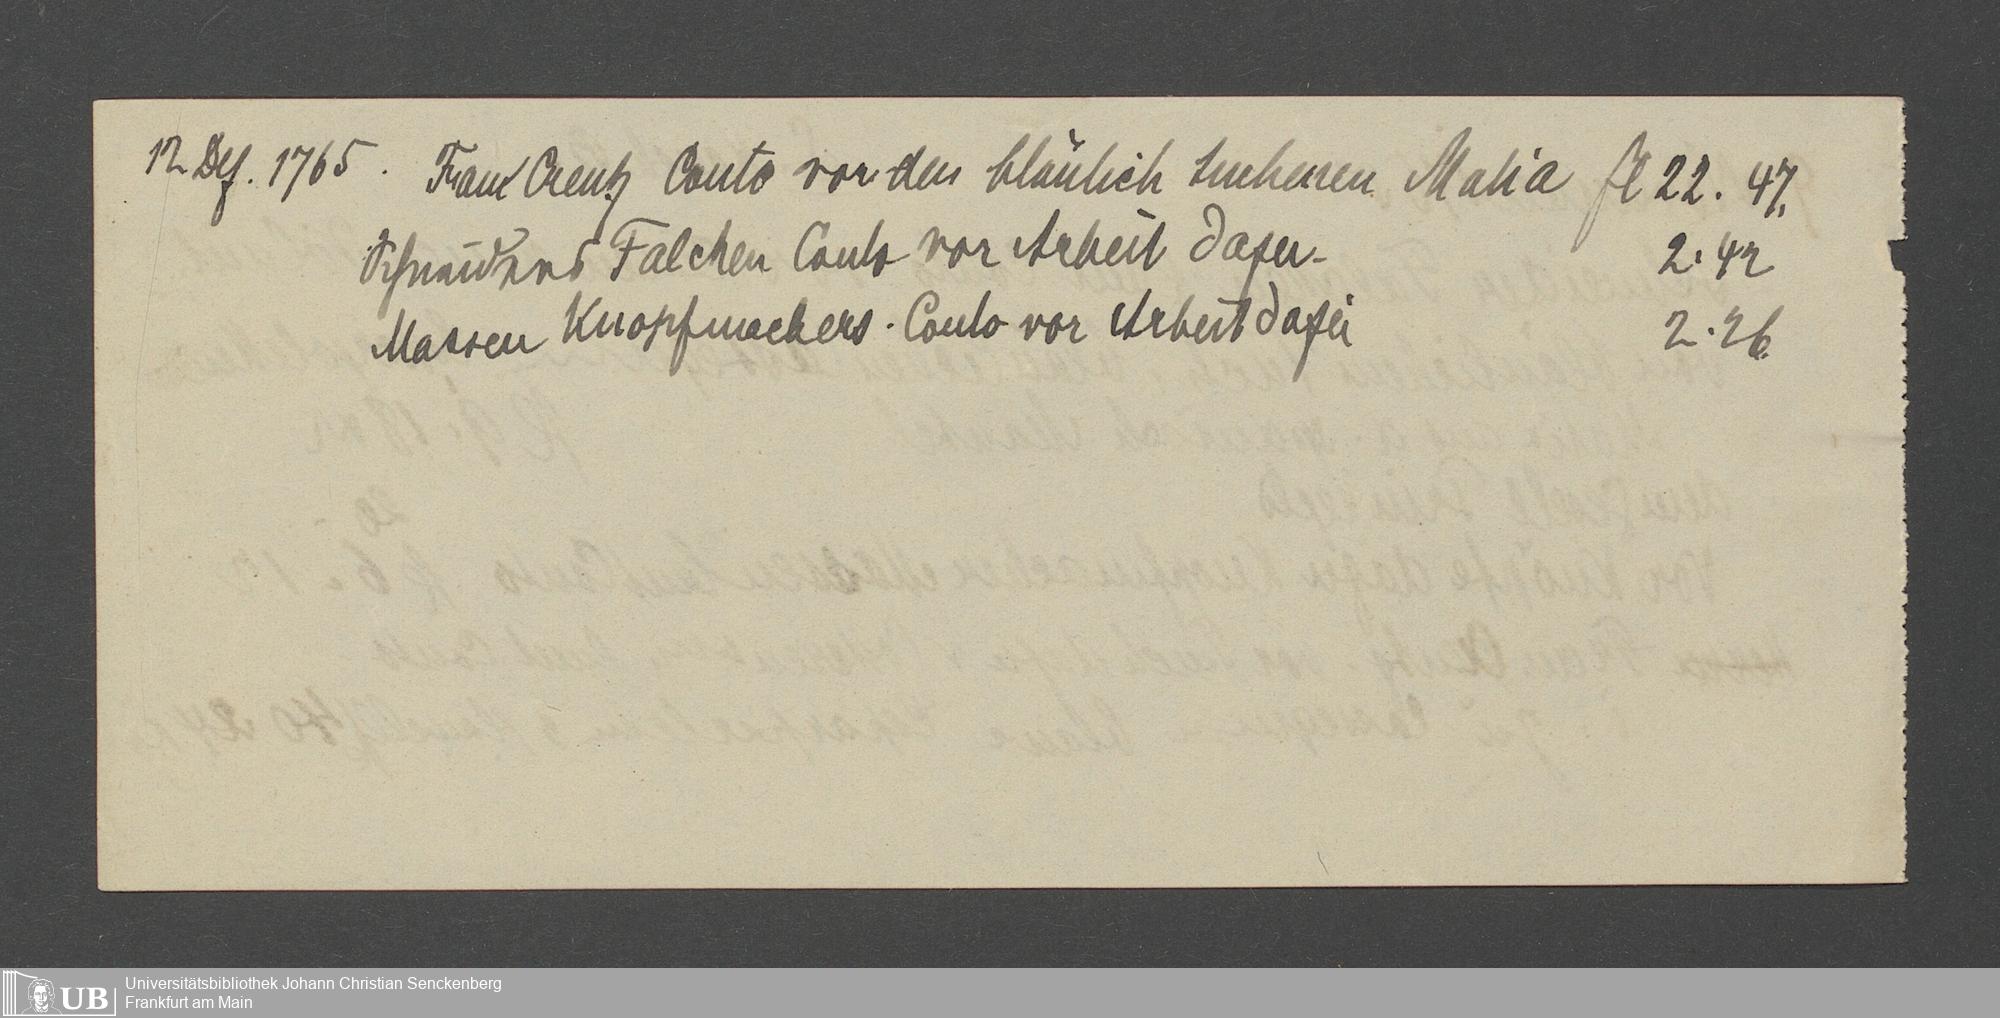 12 Dez. 1765. Frau Creutz Conto vor den bläulich tuchenen Malia fl 22. 47.
Schneiders Falchen Conto vor Arbeit dazu 2. 42
Massen Knopfmachers. Conto vor Arbeit dazu 2. 26.
Universitätsbibliothek Johann Christian Senckenberg
Frankfurt am Main
UB